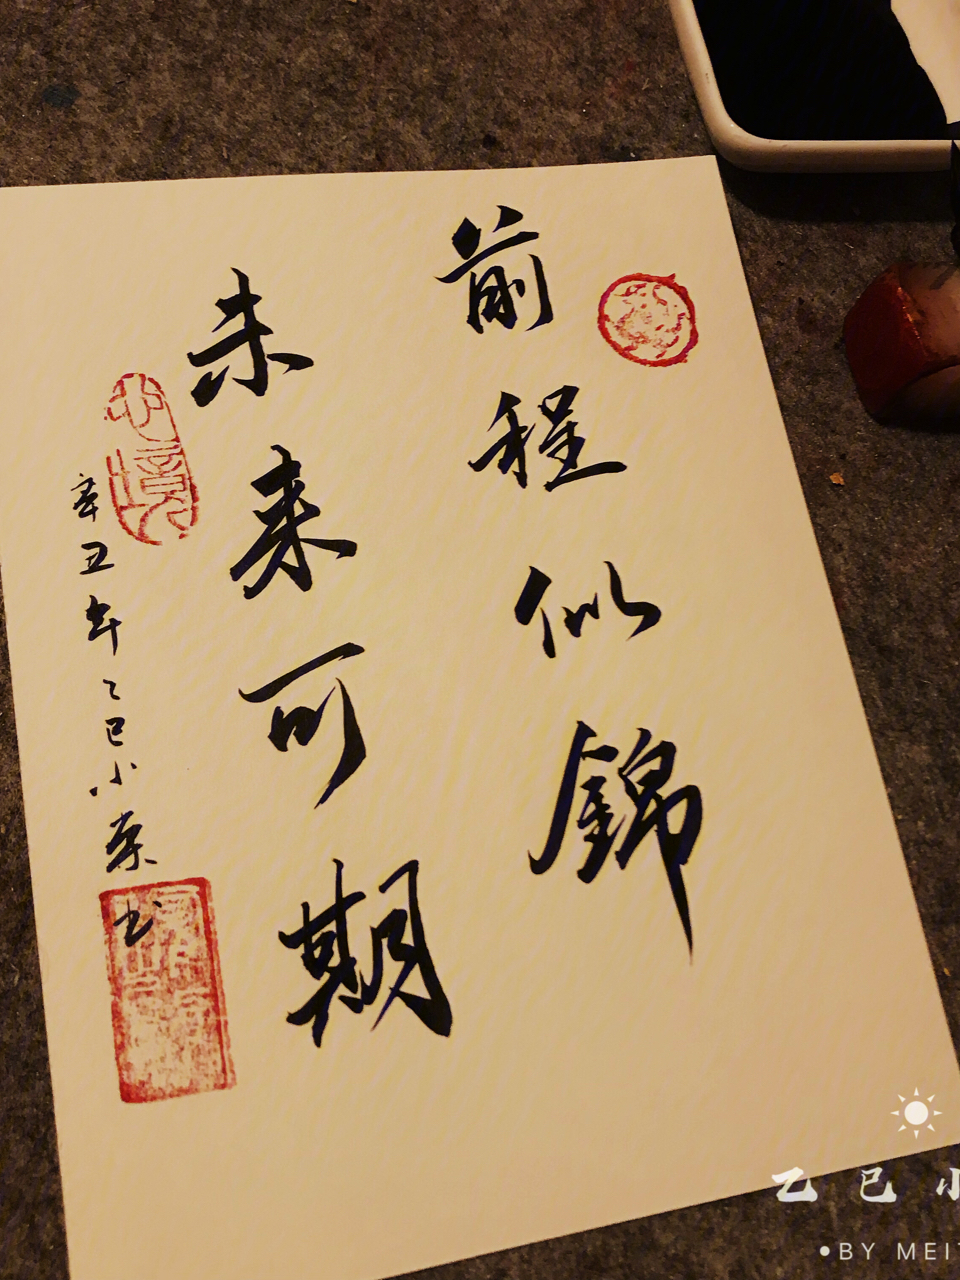 前程似錦
未来可期
心境
辛丑年乙巳小栗书
乙巳小
BY MEIT